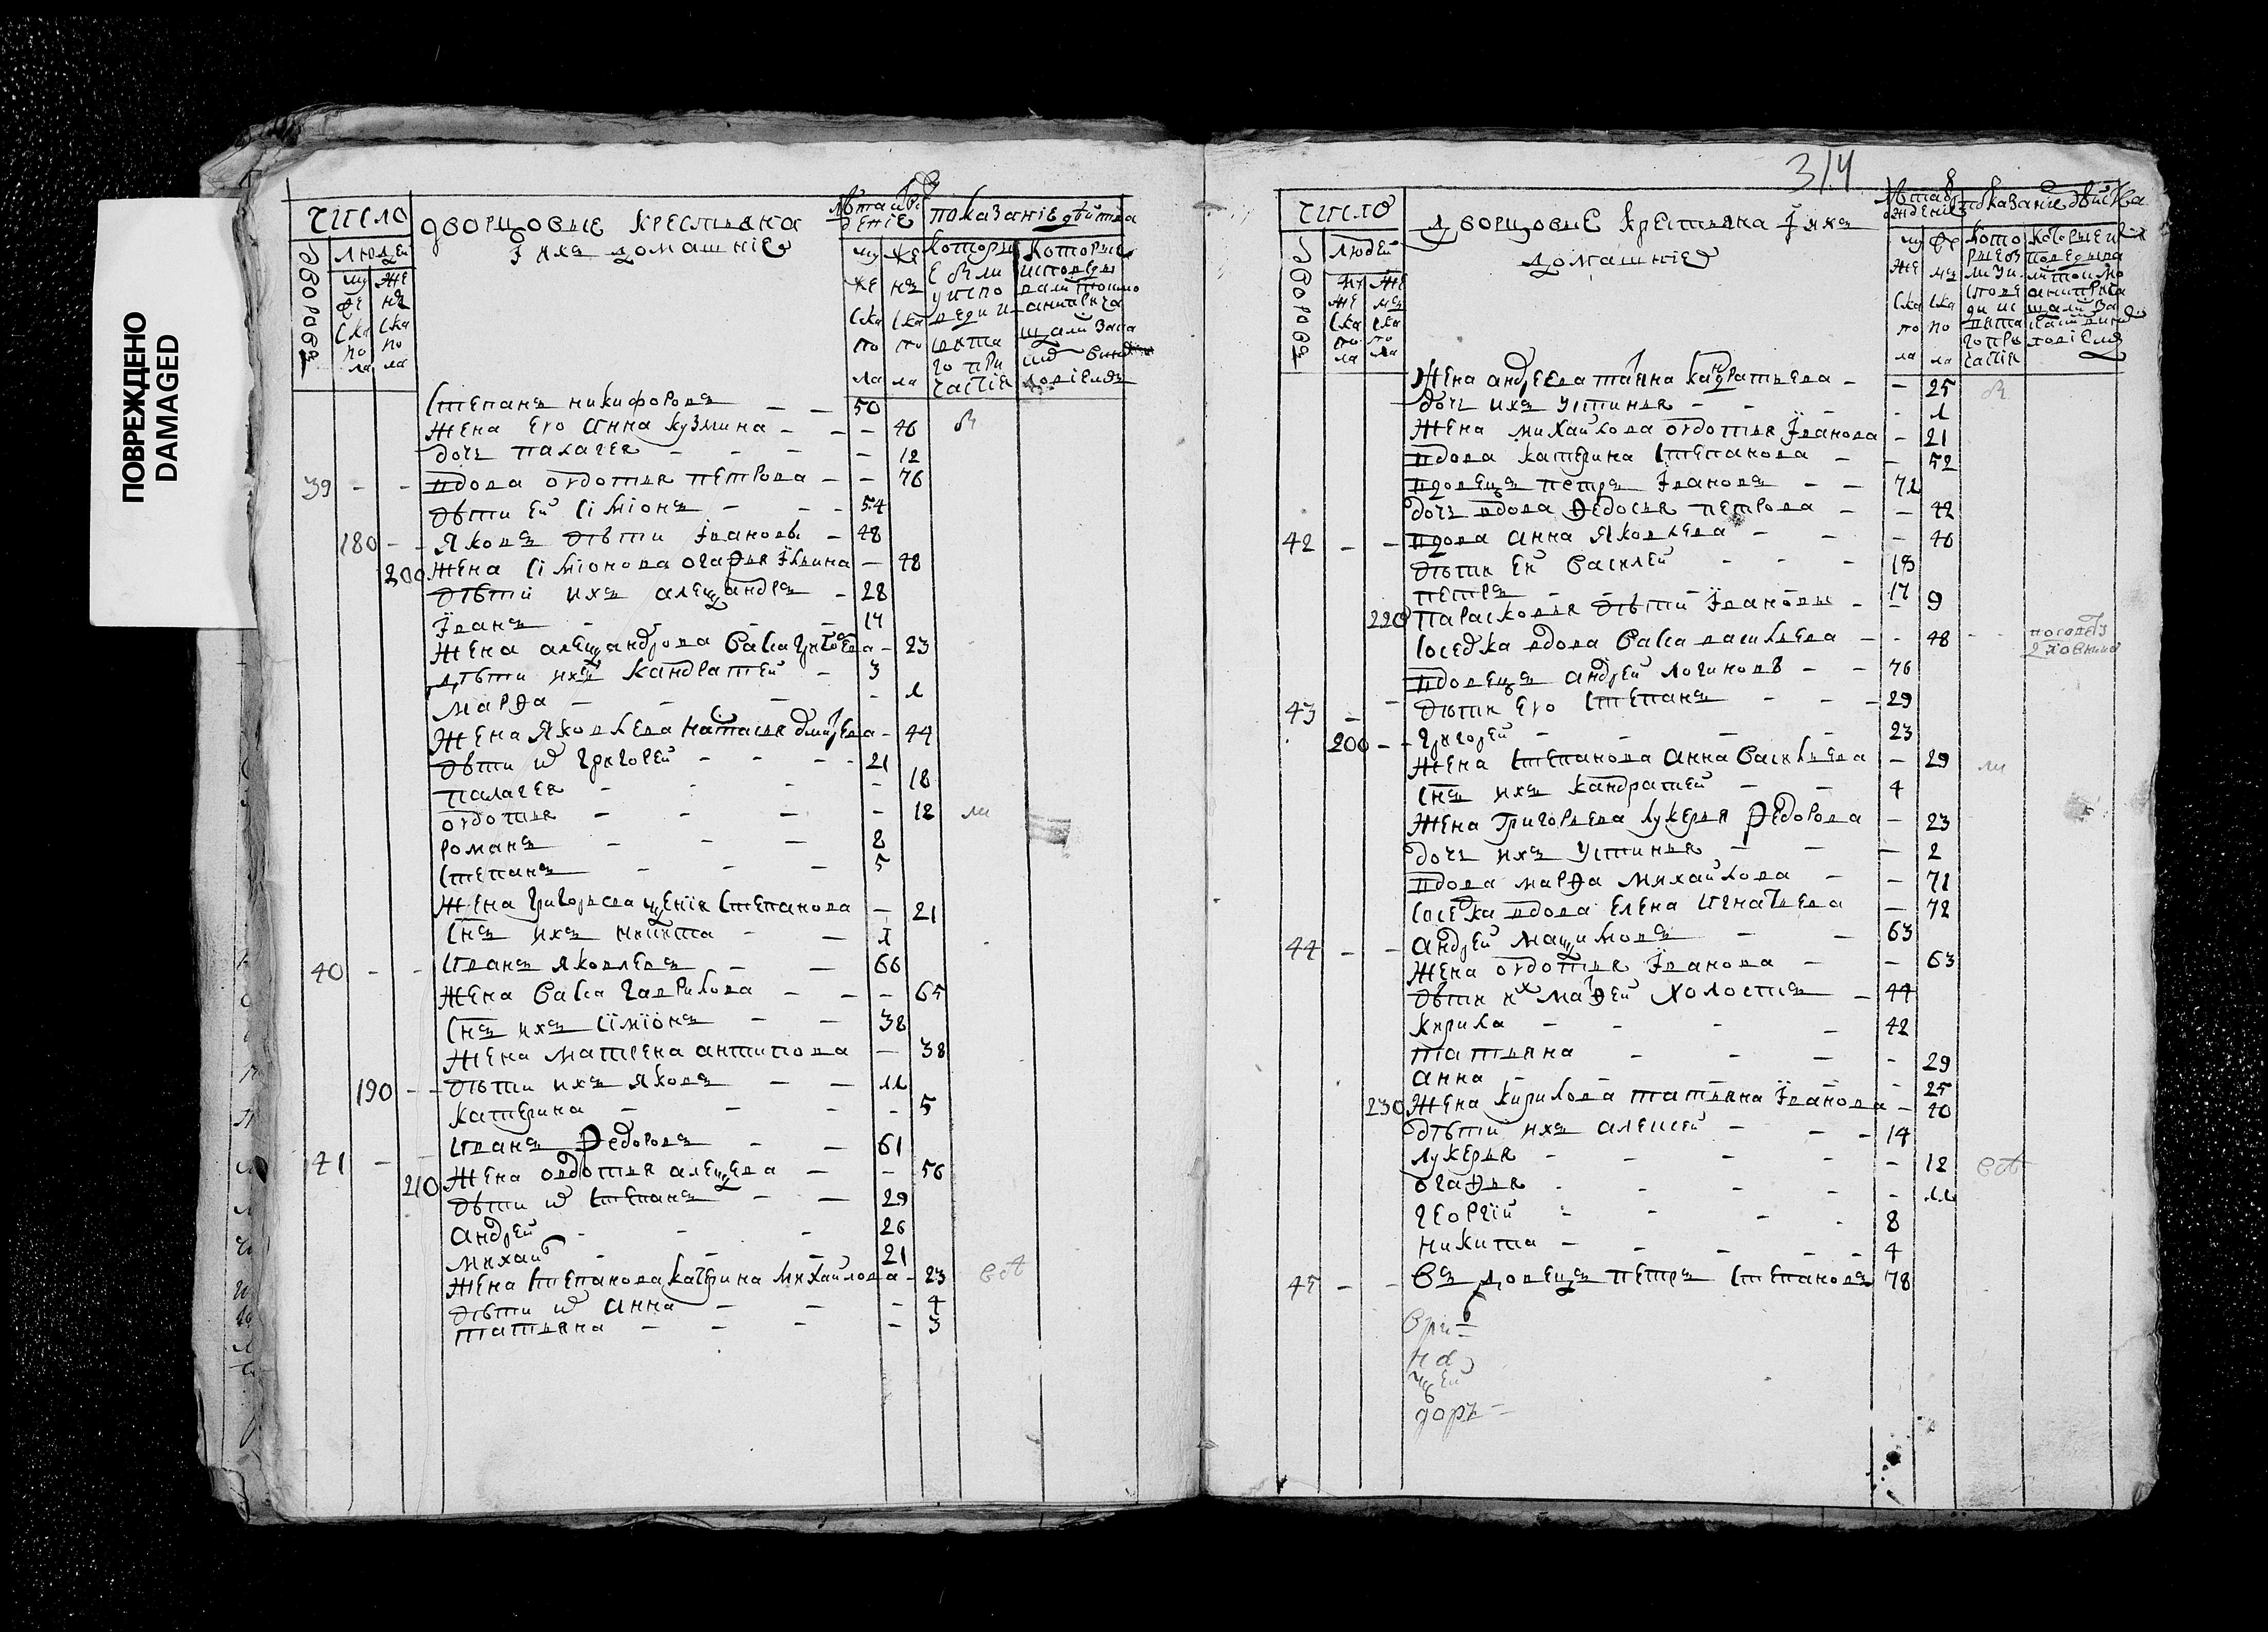 ПОВРЕЖДЕНО
DAMAGED
число дворцовые крестьяна лѣта показание
дворовъ людей I ихъ домашние
муже женъ
ска ска
по по
ла ла
Степанъ никифоровъ - - 50
жена его Анна кузмина - - - 46
дочь палагея - - - - 12
39 - - вдова овдотья петрова - - 76
дѣти ей сiмiонъ - - - 54
180 - - яковъ дѣти Iвановы - 48
200 жена сiмiонова огафья Iльина - 48
дѣти ихъ алеѯандръ - 28
Iванъ - - - 17
жена алеѯандрова Васса григорева - 23
дѣти ихъ кандратей - 3
марфа - - - - 1
жена яковлева наталья дмитрева - 44
дѣти их григорей - - - 21
палагея - - - - 18
овдотья - - - - 12
романъ - - - 8
степанъ - - - 5
жена григорьева ѯения степанова - 21
снъ ихъ никита - - 1
40 - - Иванъ яковлевъ - - 66
жена Васса гаврилова - - - 65
снъ ихъ сiмiонъ - - 38
жена матрена антипова - 38
190 - - дѣти ихъ яковъ - - 11
катерина - - - - 5
41 - - Иванъ Федоровъ - - 61
210 жена овдотья алеѯеева - - 56
дѣти их степанъ - - 29
андрей - - - 26
михаил - - - 21
жена степанова катерина михайлова - 23
дѣти их анна - - - 4
татьяна - - - - 3
314
число дворцовые крестьяна I ихъ
дворовъ людей домашние
жена андреева татяна кандратьева - - 25
дочь ихъ устинья - - - - 1
жена михайлова овдотья Iванова - 21
вдова катерина степанова - - 52
вдовецъ петръ Iвановъ - - 72
дочь вдова Федосья петрова - - 42
42 - - вдова анна яковлева - - - 46
дѣти ей Василей - - - 19
петръ - - - - 17
220 парасковья дѣти Iвановы - - 9
соседка вдова Васса васильева - - 48
вдовецъ андрей логиновъ - - 76
43 - - дѣти его степанъ - - - 29
200 - - григорей - - - 23
жена степанова анна Васильева - 29
снъ ихъ кандратей - - 4
жена григорьева лукерья Федорова - 23
дочь ихъ устинья - - - 2
вдова марфа михайлова - - 71
соседка вдова елена игнатьева - 72
44 - - андрей маѯимовъ - - 63
жена овдотья Iванова - - 63
дѣти их матфей холостъ - 44
кирила - - - - 42
татьяна - - - - 29
анна - - - - 25
230 жена кирилова татьяна Iванова - 40
дѣти ихъ алеѯей - - - 14
лукерья - - - - 12
огафья - - - - 11
георгiй - - - - 8
никита - - - - 4
45 - - Въдовецъ петръ степановъ 78